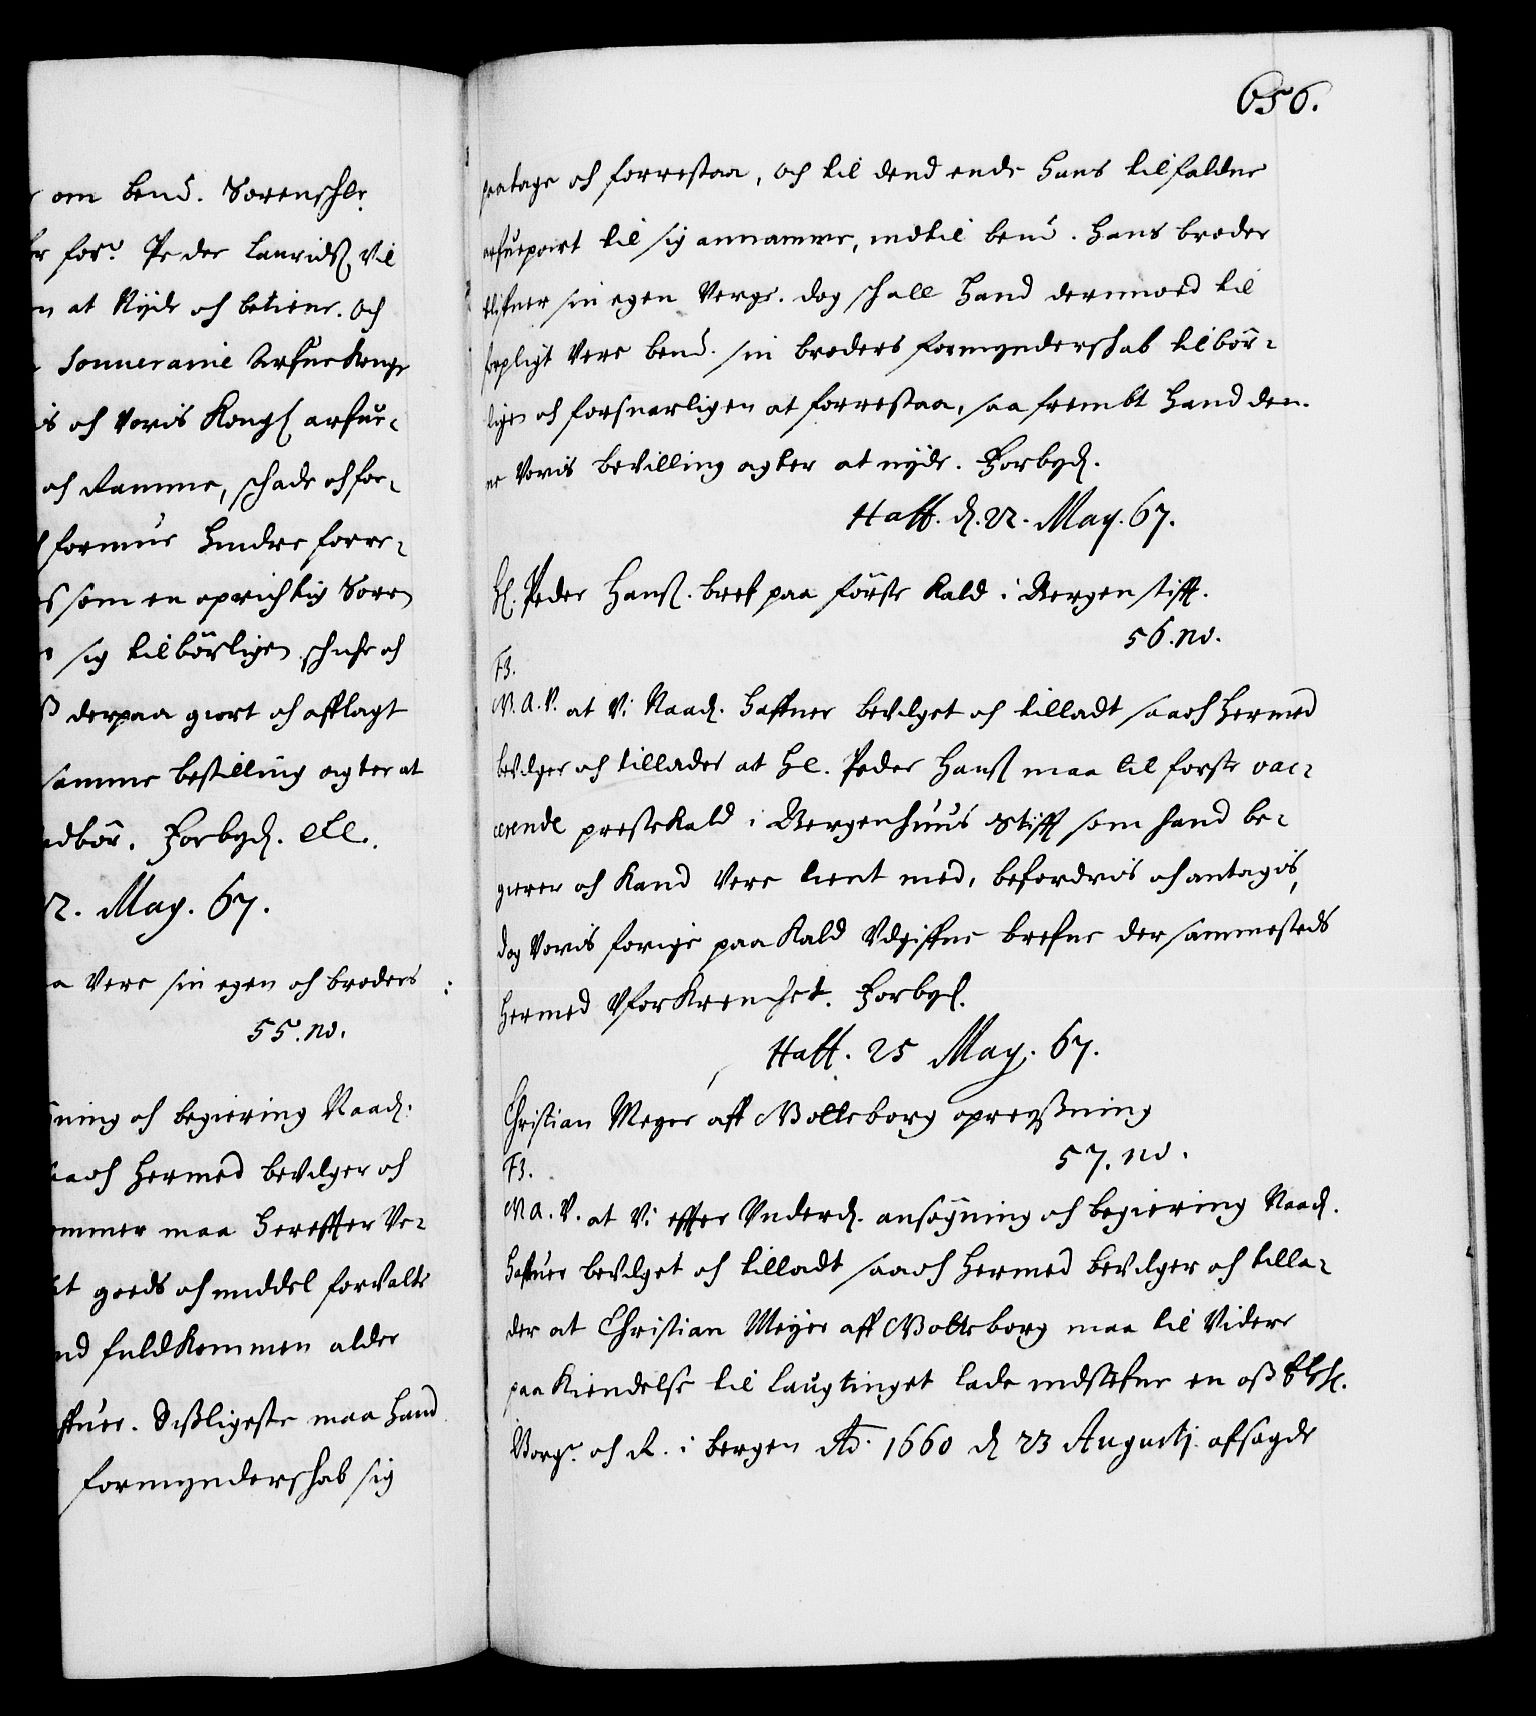 om bend. Sorenschr.
for.e Peder Lauridß. vil
at Nyde och betiene. och
Souveraine Arfue Konge
och voris Kongl arfue-
och Ramme, schade och for-
formue hindre forre-
som en oprichtig Soren
sig tilbörligen schiche och
derpaa giort och afflagt
samme bestilling agter at
Forbyd. etc.
May. 67.
a vere sin egen och broders
55. no.
och begiering Naad.
saaoch hermed bevilger och
maa hereffter ve-
goeds och middel forvalte
fuldkommen alder
Dißligeste maa hand
formynderschab sig
656.
paatage och forrestaa, och til dend ende hans tilfaldne
arfuepart til sig annamme, indtil bend. hans broder
blifuer sin egen Verge. dog schall hand dermed til
forpligt vere bend. sin broders formynderschab tilbör-
ligen och forsuarligen at forrestaa, saa frembt hand den-
ne voris bevilling agter at nyde. Forbyd.
Haff. d. 22. May. 67.
Hl. Peder Hanß. bref paa förste Kald i Bergen stifft.
56. no.
F3.
W. A. V. at Vi Naad. haffuer bevilget och tilladt saaoch hermed
bevilger och tillader at Hl. Peder Hanß maa til forste vac-
cerende prestekald i Bergenhuus Stifft som hand be-
gierer och kand vere tient med, befordris och antagis,
dog voris forige paa Kald Udgiffne brefue der sammesteds
hermed Uforkrenchet. Forbyd.
Haff. 25 May. 67.
Christian Meyer aff Wolssborg opreyßning
57. no.
F3.
W A. V. at Vi effter Underd. ansögning och begiering Naad.
haffuer bevilget och tilladt saaoch hermed bevilger och tilla-
der at Christian Meyer aff Wolssborg maa til Videre
paa Kiendelse til laugtinget lade indstefne en aff
Borg. och R. i bergen Ao. 1660 d 23 Augusti afsagde